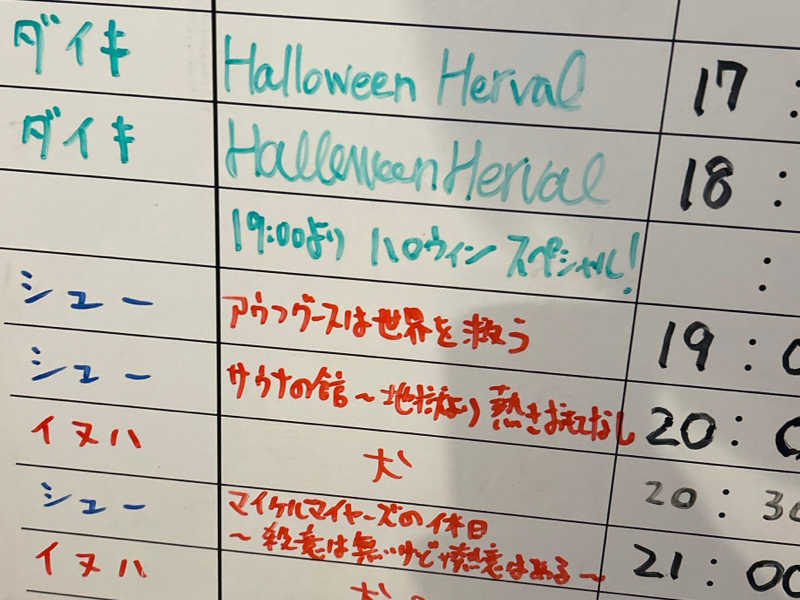 ダイキ Halloween Herval 17:
ダイキ Halloween Herval 18:
19:00より ハロウィン スペシャル! :
シュー アウフグースは世界を救う 19:0
シュー サウナの館〜地獄より熱きおもてなし 20:0
イヌハ 犬 20:30
シュー マイケルマイヤーズの休日
〜殺意は無いけど熱意はある〜 21:00
イヌハ